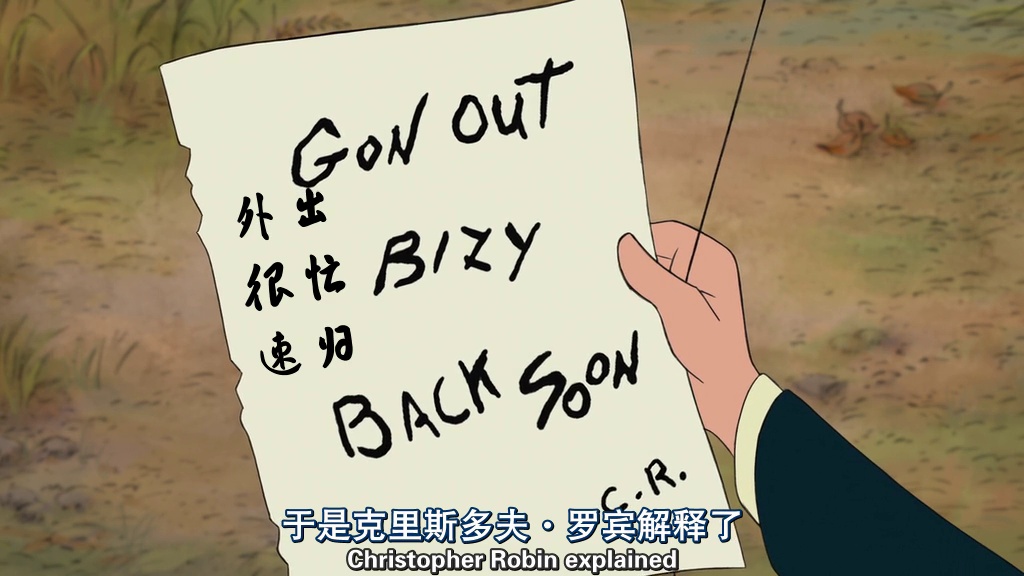 GON OUT
外出
BIZY
很忙
速归
BACK SOON
C.R.
于是克里斯多夫·罗宾解释了
Christopher Robin explained